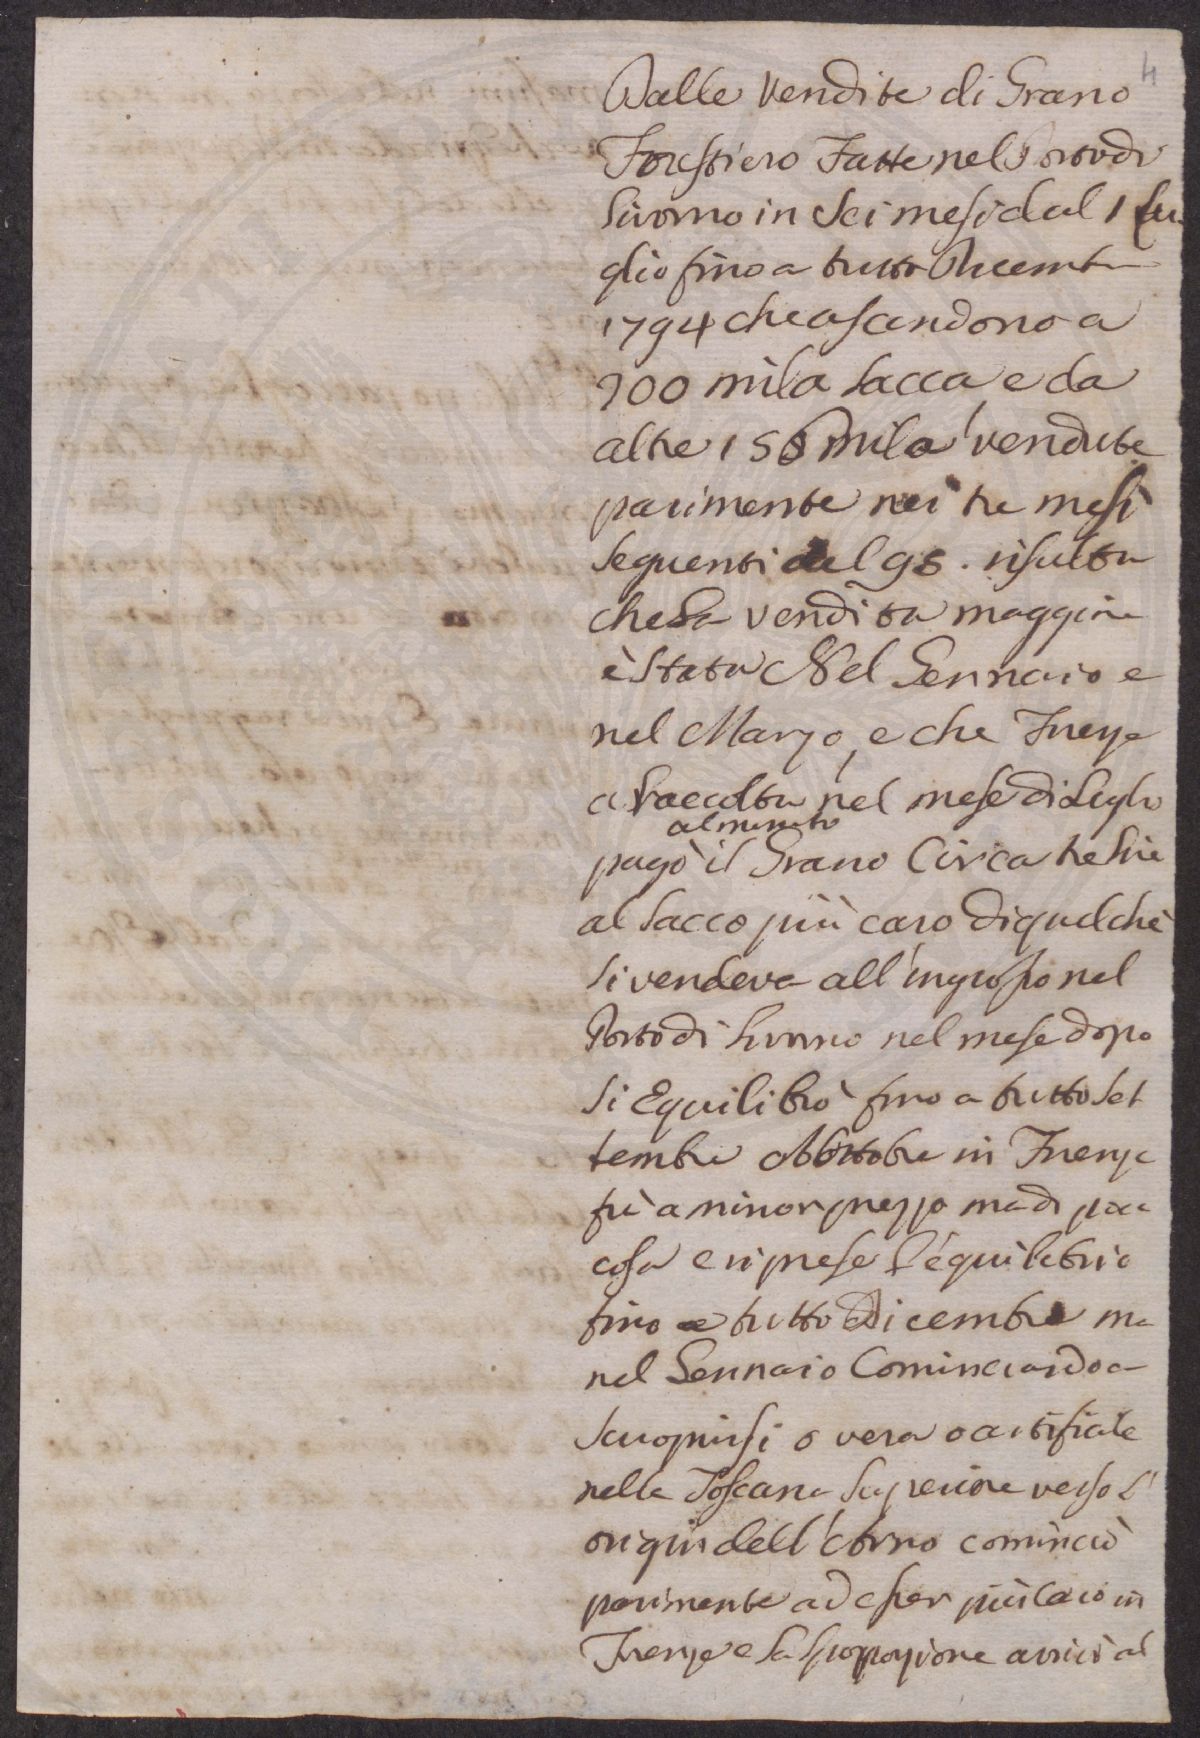 4
Dalle Vendite di Grano
Forestiero Fatte nel Porto di
Livorno in Sei mesi dal 1 Lu
glio fino a tutto Dicembre
1794 che ascendono a
900 mila Sacca, e da
altre 156 mila vendute
parimente nei tre mesi
seguenti del 95. risulta
che La vendita maggiore
è Stata Nel Gennaio e
nel Marzo, e che Firenze
a Raccolta nel mese di Luglio
al minuto
pagò il Grano Circa tre Lire
al Sacco più caro di quel che
si vendeva all'ingrosso nel
Porto di Livorno nel mese dopo
si Equilibrò fino a tutto Set
tembre Ottobre in Firenze
fù a minor prezzo ma di poca
cosa e riprese l'equilibrio
fino a tutto Dicembre ma
nel Gennaio Cominciando a
Scuoprirsi o vera o artifiale
nella Toscana Superiore verso l'
origin dell'Arno cominciò
parimente ad esser più caro in
Firenze e La Sproporzione arrivò al